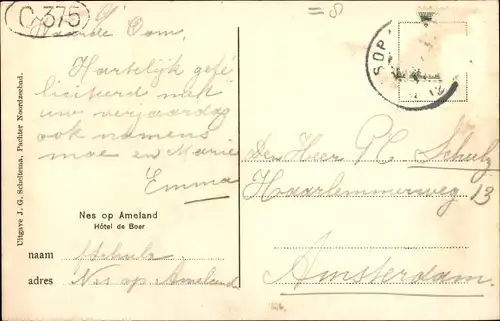 C 375
=8
Waarde Oom,
Hartelijk gefe
liciteerd met
uw verjaardag
ook namens
moe en Marie
Emma
Nes op Ameland
Hôtel de Boer
naam Schulz
adres Nes op Ameland
Uitgave J. G. Scheltema, Pachter Noordzeebad.
SOP
Den Heer P C Schulz
Haarlemmerweg 13
Amsterdam.